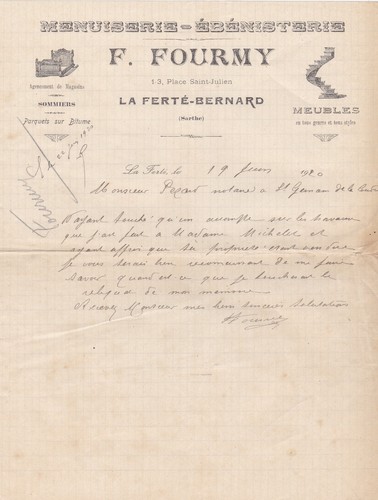 MENUISERIE - ÉBÉNISTERIE
F. FOURMY
1-3, Place Saint-Julien
LA FERTÉ-BERNARD
(Sarthe)
Agencement de Magasins
SOMMIERS
Parquets sur Bitume
MEUBLES
en tous genres et tous styles
La Ferté, le 19 Juin 1920
Monsieur notaire à St Germain de la
Ayant touché qu'un accompte sur les travaux
que j'ai fait à Madame Michelet et
ayant appris que ses propriétés sont vendre
je vous serais bien reconnaissant de me faire
savoir quand est ce que je toucherai le
reliquat de mon mémoire
Recevez Monsieur mes bien sincères salutations
Fourmy